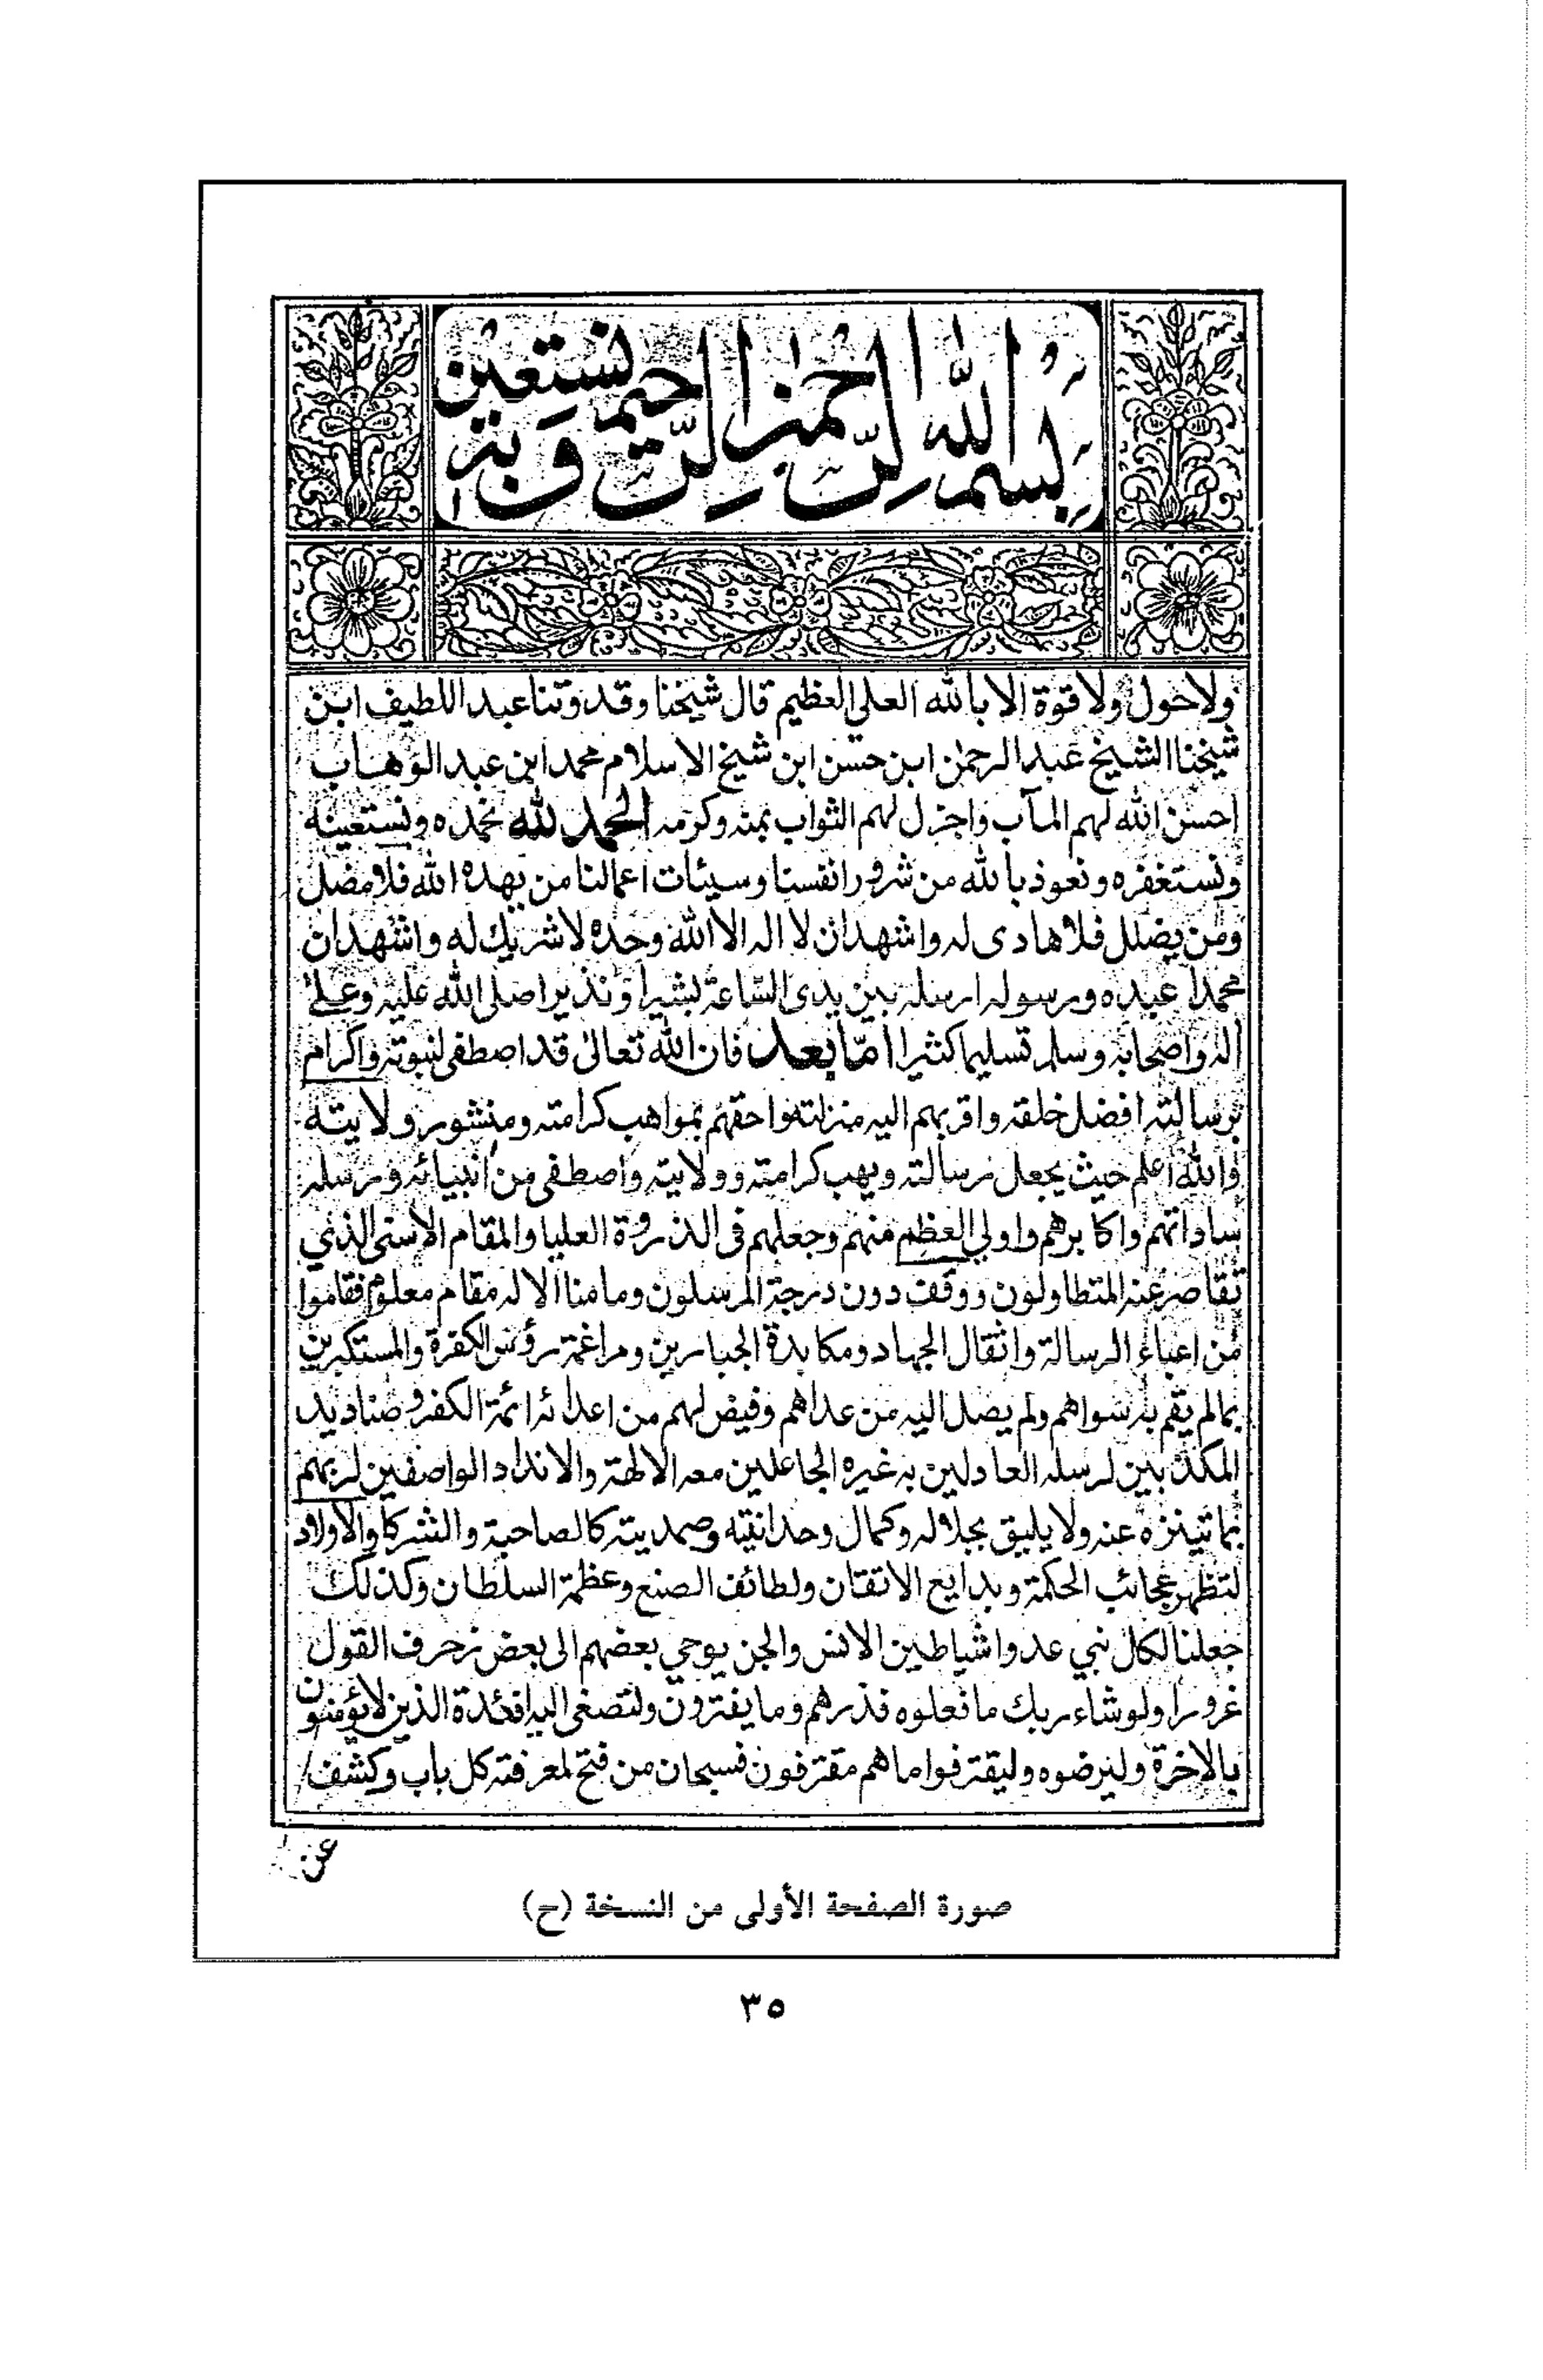 بسم الله الرحمن الرحيم وبه نستعين
ولا حول ولا قوة الا بالله العلي العظيم قال شيخنا وقدوتنا عبد اللطيف ابن
شيخنا الشيخ عبد الرحمن ابن حسن ابن شيخ الاسلام محمد ابن عبد الوهاب
احسن الله لهم المآب واجزل لهم الثواب بمنه وكرمه الحمد لله نحمده ونستعينه
ونستغفره ونعوذ بالله من شرور انفسنا وسيئات اعمالنا من يهده الله فلا مضل
ومن يضلل فلا هادى له واشهد ان لا اله الا الله وحده لا شريك له واشهد ان
محمدا عبده ورسوله ارسله بين يدى الساعة بشيرا ونذيرا صلى الله عليه وعلى
اله واصحابه وسلم تسليما كثيرا اما بعد فان الله تعالى قد اصطفى لنبوته واكرام
برسالته افضل خلقه واقربهم اليه منزلته واحقهم بمواهب كرامته ومنشور ولايته
والله اعلم حيث يجعل رسالته ويهب كرامته وولايته واصطفى من انبيائه ورسله
ساداتهم واكابرهم واولي العظم منهم وجعلهم فى الذروة العليا والمقام الاسنى الذي
تقاصر عنه المتطاولون ووقف دون درجة المرسلون وما منا الا له مقام معلوم فقاموا
من اعباء الرسالة واثقال الجهاد ومكابدة الجبارين ومراغمة رؤس الكفرة والمستكبرين
بما لم يقم به سواهم ولم يصل اليه من عداهم وقيض لهم من اعدائه ائمة الكفر وصناديد
المكذبين لرسله العادلين به غيره الجاعلين معه الالهة والانداد الواصفين لربهم
بما تينزه عنه ولا يليق بجلاله وكمال وحدانيته وصمديته كالصاحبة والشركا والاولاد
لتظهر عجائب الحكمة وبدايع الاتقان ولطائف الصنع وعظمة السلطان وكذلك
جعلنا لكل نبي عدوا شياطين الانس والجن يوحي بعضهم الى بعض زخرف القول
غرورا ولو شاء ربك ما فعلوه فذرهم وما يفترون ولتصغى اليه افئدة الذين لا يؤمنون
بالاخرة وليرضوه وليقترفوا ما هم مقترفون فسبحان من فتح لمعرفته كل باب وكشف
عن
صورة الصفحة الأولى من النسخة (ح)
٣٥